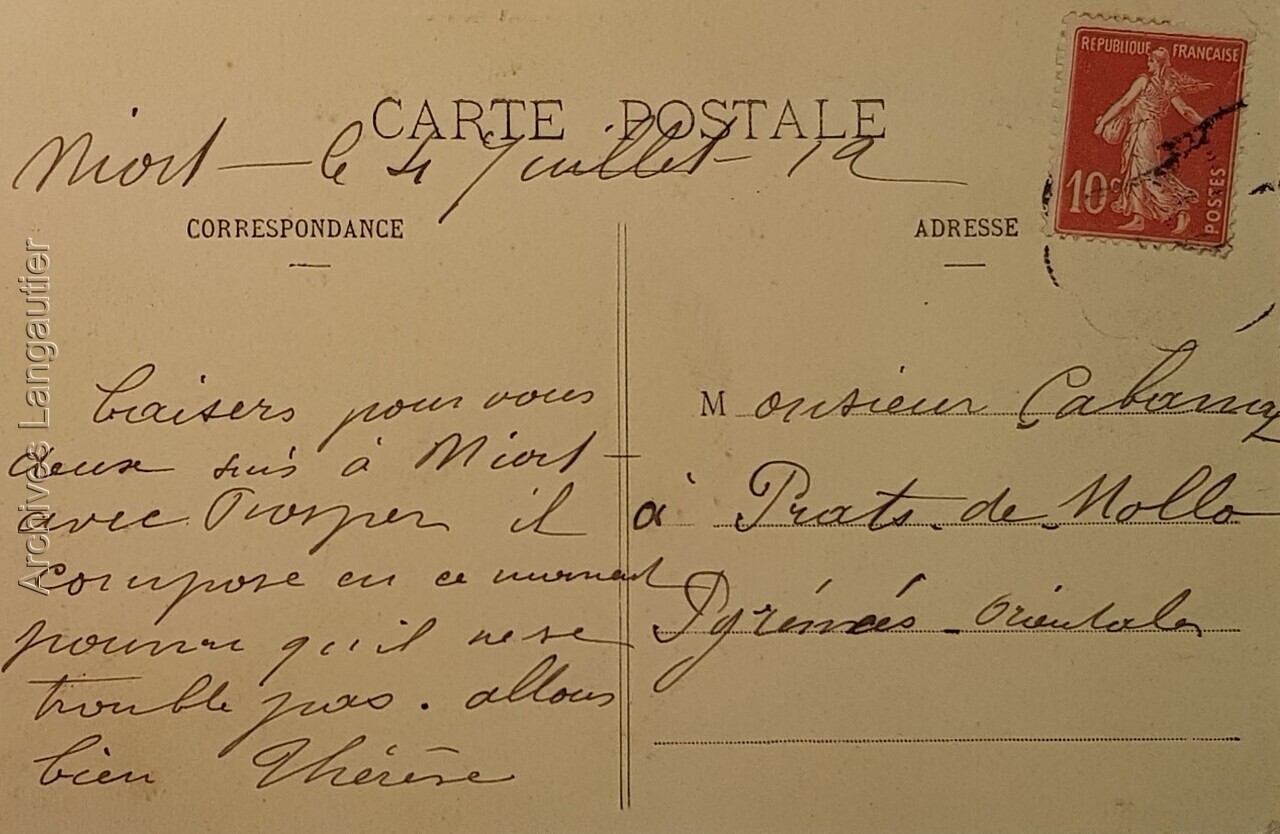 CARTE POSTALE
Niort — le 4 Juillet 12
CORRESPONDANCE
ADRESSE
RÉPUBLIQUE FRANÇAISE
10c
POSTES
Baisers pour vous
deux suis à Niort
avec Prosper il
compose en ce moment
pourvu qu'il ne se
trouble pas. allons
bien Thérèse
Monsieur
à Prats-de-Mollo
Pyrénées-Orientales
Archives Langautier